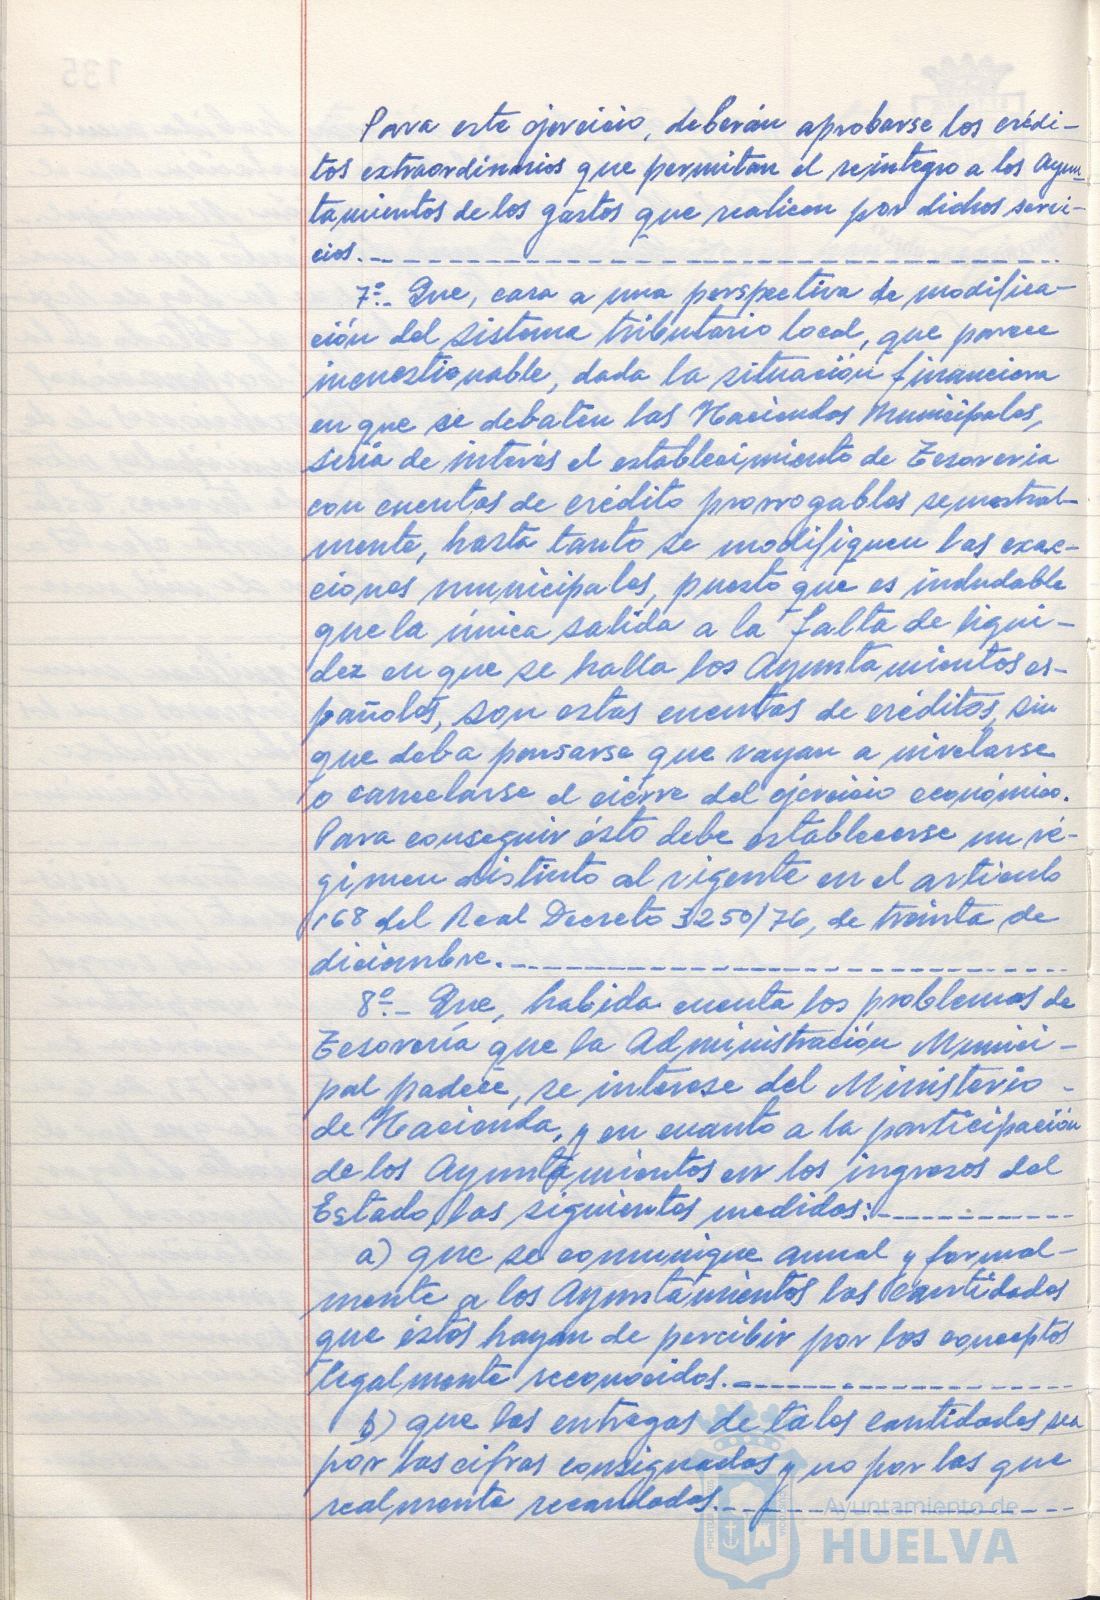 Para este ejercicio, deberán aprobarse los crédi-
tos extraordinarios que permitan el reintegro a los Ayun-
tamientos de los gastos que realicen por dichos servi-
cios.-
7º.- Que, cara a una perspectiva de modifica-
ción del sistema tributario local, que parece
incuestionable, dada la situación financiera
en que se debaten las Haciendas Municipales,
sería de interés el establecimiento de Tesoreria
con cuentas de crédito prorrogables semestral-
mente, hasta tanto se modifiquen las exac-
ciones municipales, puesto que es indudable
que la única salida a la falta de liqui-
dez en que se halla los Ayuntamientos es-
pañoles, son estas cuentas de créditos, sin
que deba pensarse que vayan a nivelarse
o cancelarse el cierre del ejercicio económico.
Para conseguir ésto debe establecerse un ré-
gimen distinto al vigente en el artículo
168 del Real Decreto 3250/76, de treinta de
diciembre.-
8º.- Que, habida cuenta los problemas de
Tesorería que la Administración Munici-
pal padece, se interese del Ministerio
de Hacienda, y en cuanto a la participación
de los Ayuntamientos en los ingresos del
Estado, las siguientes medidas:-
a) que se comunique anual y formal-
mente a los Ayuntamientos las cantidades
que éstos hayan de percibir por los conceptos
legalmente reconocidos.-
b) que las entregas de tales cantidades sea
por las cifras consignadas y no por las que
realmente recaudadas.-
Ayuntamiento de
HUELVA